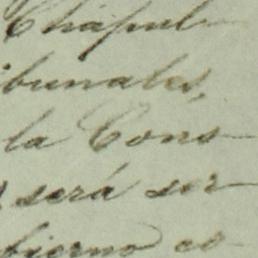 Chapul
ibunales,
la Cons
será ser
bierno es